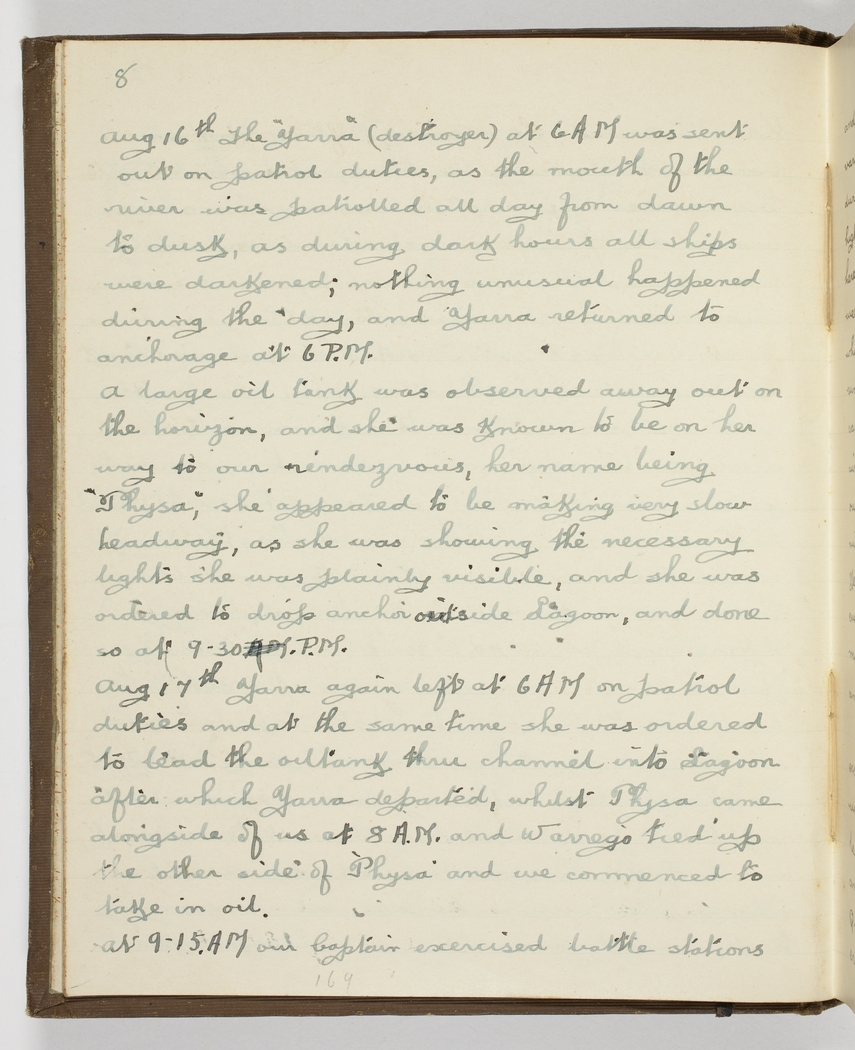 8
Aug 16th The "Yarra" (destroyer) at 6 AM was sent
out on patrol duties, as the mouth of the
river was patrolled all day from dawn
to dusk, as during dark hours all ships
were darkened; nothing unusual happened
during the day, and Yarra returned to
anchorage at 6 P.M.
A large oil tank was observed away out on
the horizon, and she was known to be on her
way to our rendezvous, her name being
"Thysa", she appeared to be making very slow
headway, as she was showing the necessary
lights she was plainly visible, and she was
ordered to drop anchor outside Lagoon, and done
so at 9-30 P.M.
Aug 17th Yarra again left at 6 AM on patrol
duties and at the same time she was ordered
to lead the oiltank thru channel into Lagoon
after which Yarra departed, whilst Thysa came
alongside of us at 8 A.M. and Warrego tied up
the other side of "Thysa" and we commenced to
take in oil.
At 9-15 AM our Captain exercised battle stations
164